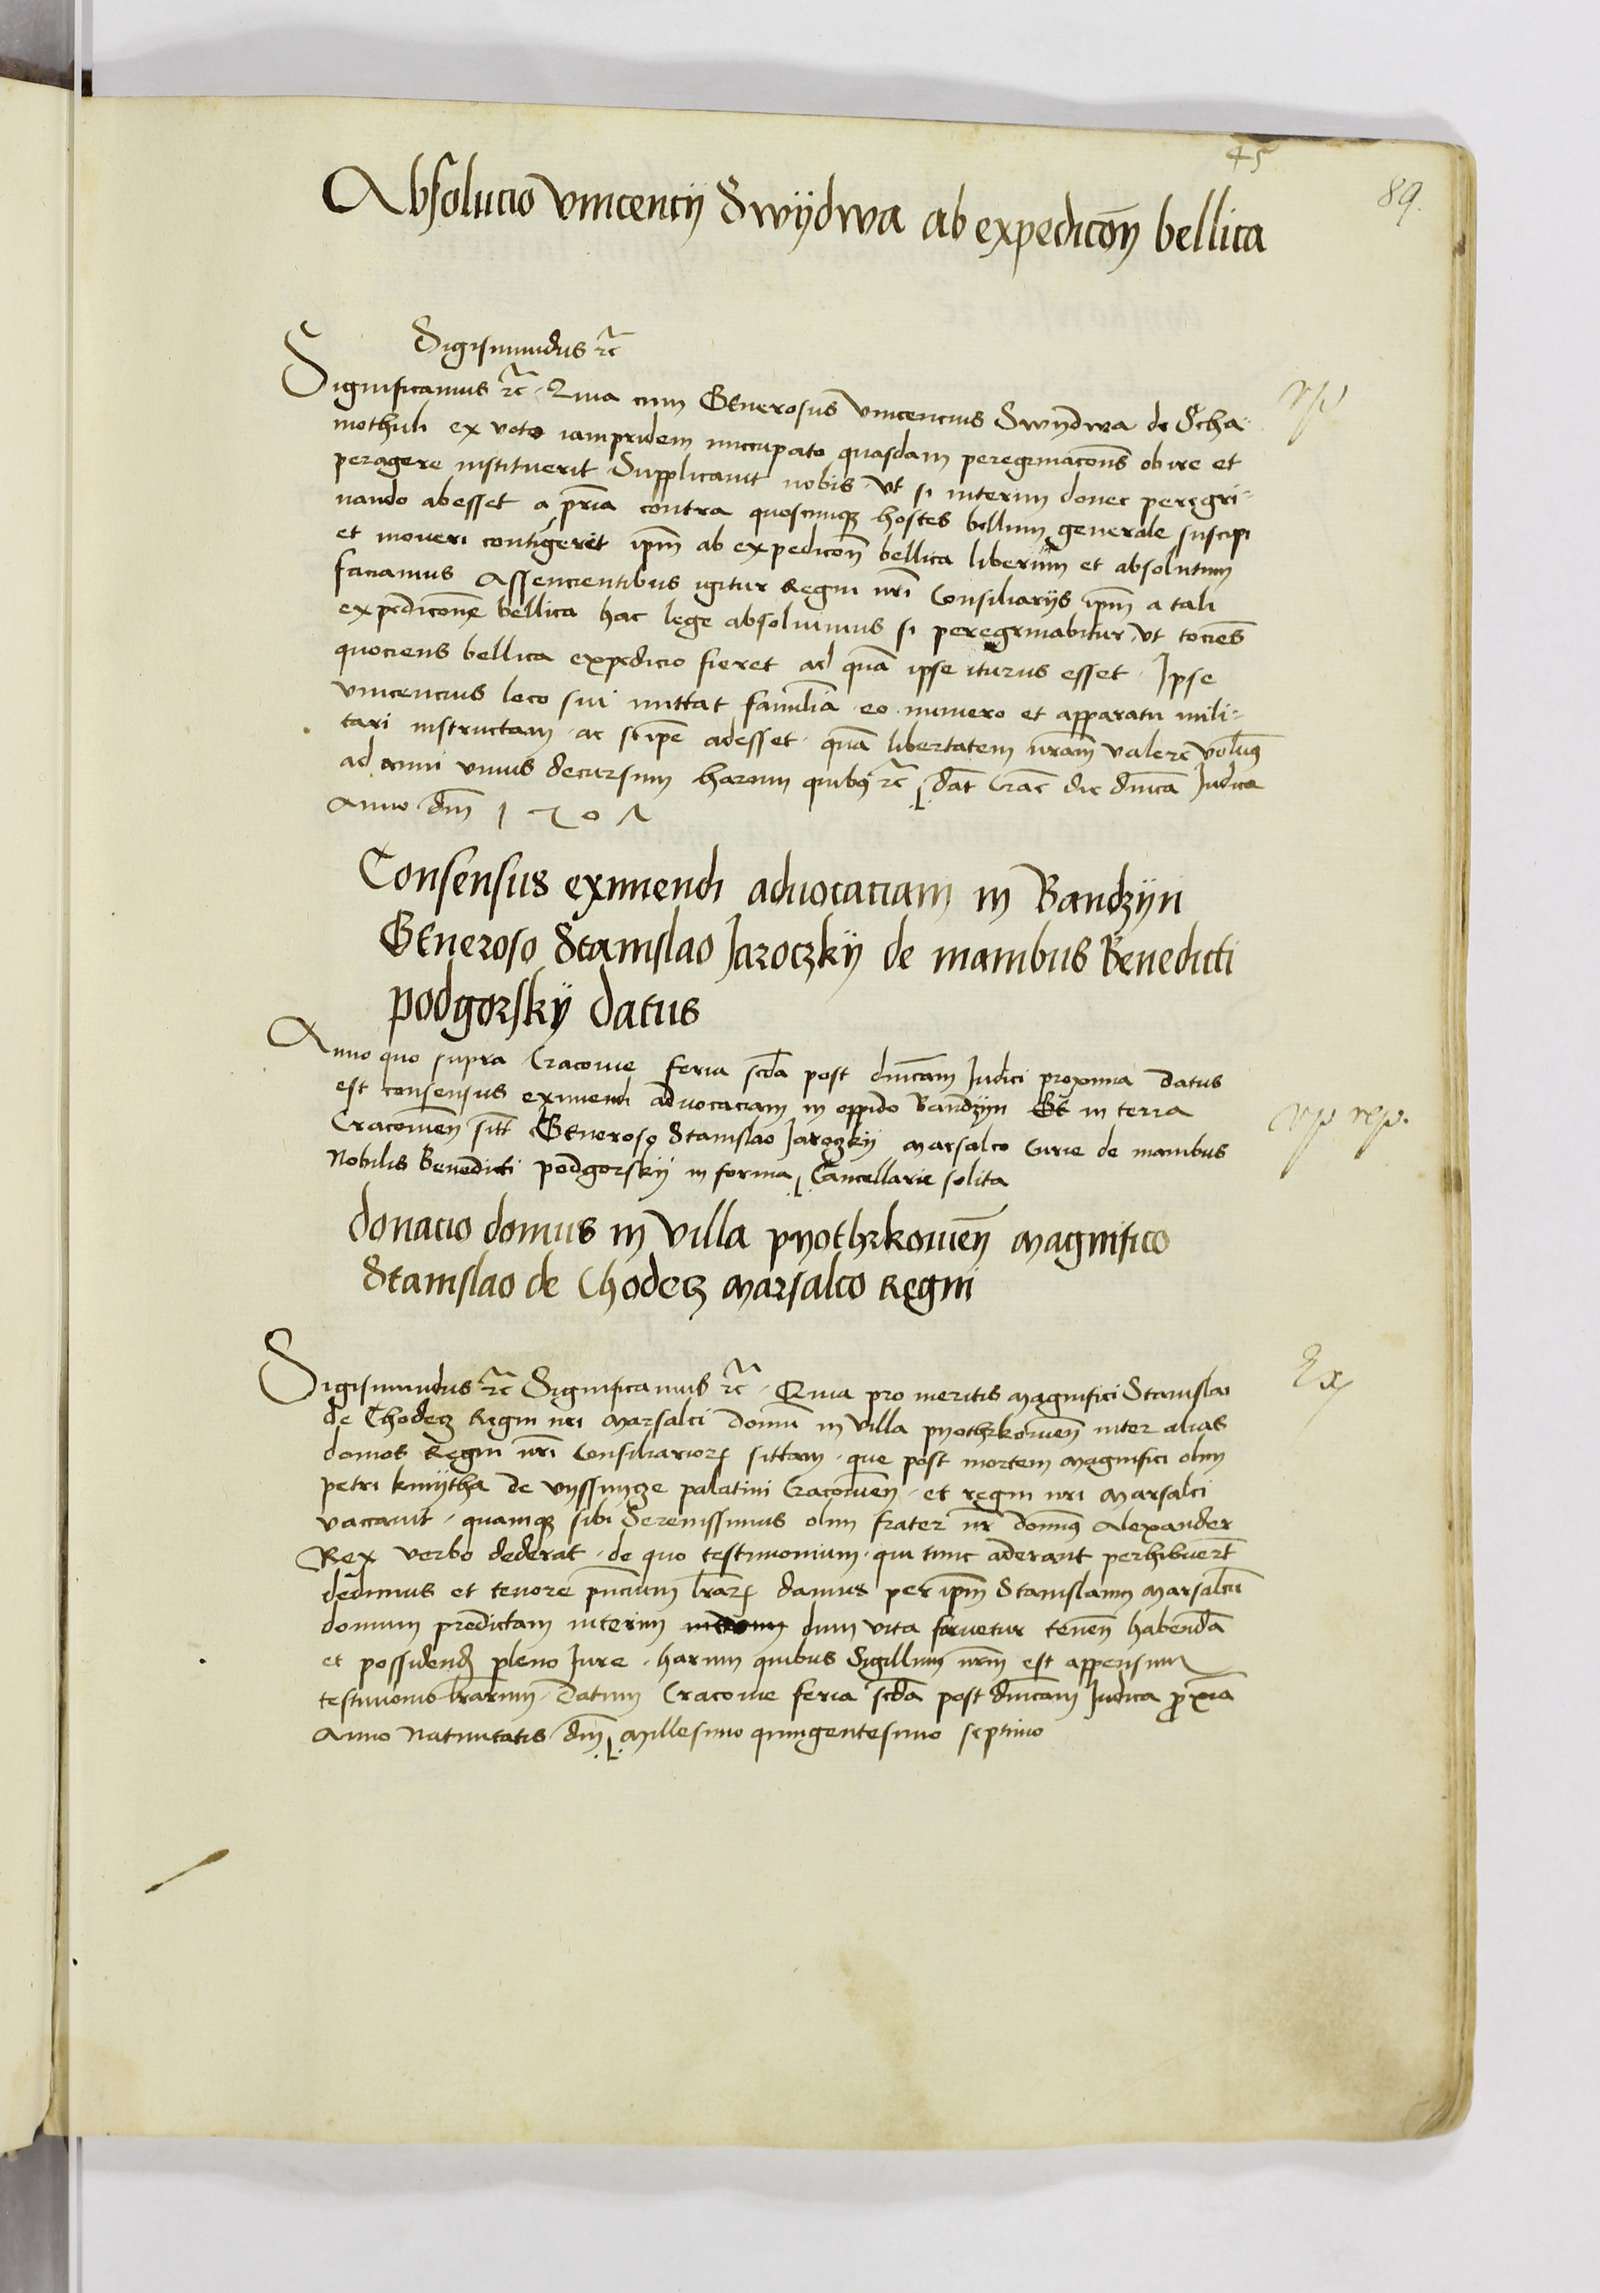 45
89.
Absolucio Vincencÿ Swÿdwa ab expedicōn bellica
Sigismundus ꝛc̄
Significamus ꝛc̄. Quia cum Generosus Vincencius Swÿdwa de Scha-
mothuli ex voto iampridem nuccupato quasdam peregrinacōns obire et
peragere instituerit Supplicauit nobis. Vt si interim donec peregri-
nando abesset a pr̄ia contra quoscumqꝫ hostes bellum generale suscipi
et moueri contigerit ip̄m ab expedicōn bellica liberum et absolutum
faciamus Assencientibus igitur Regni nr̄i Consiliarÿs ip̄m a tali
expedicōne bellica hac lege absoluimus si peregrinabitur, vt tociēs
quociens bellica expedicio fieret ad quā ipse iturus esset. Ipse
Vincencius loco sui mittat familiā eo numero et apparatu mili-
tari instructam ac si ip̄e adesset. quā libertatem nr̄am valere volum̄
ad anni vnius decursum harum quibꝫ ꝛc̄ dat̄ Crac̄ die dn̄ica Judica
Anno dn̄i 1507
Consensus eximendi aduocaciam in Bandzÿn
Generoso Stanislao Jaroczkÿ de manibus Benedicti
podgorskÿ datus
Anno quo supra Cracouie feria scd̄a post dn̄icam Judici proxima datus
est consensus eximendi aduocaciam in oppido Bandzÿn Et in terra
Cracouien̄ sitt̄ Generoso Stanislao Jaroczkÿ Marsalco Curie de manibus
Nobilis Benedicti podgorskÿ in forma Cancellarie solita
donacio domus in Villa pyothrkouien̄ Magnifico
Stanislao de Chodecz Marsalco Regni
Sigismundus ꝛc̄ Significamus ꝛc̄. Quia pro meritis Magnifici Stanislai
de Chodecz Regni nr̄i Marsalci domū in villa pyothrkouien̄ inter alias
domos Regni nr̄i Consiliarioꝝ sittam. que post mortem Magnifici olim
petri kmÿtha de vyssnycze palatini Cracouien̄. et regni nr̄i Marsalci
vaccauit. quamqꝫ sibi Serenissimus olim frater nr̄ domin̄ Alexander
Rex verbo dederat. de quo testimonium. qui tunc aderant perhibuerūt
dedimus et tenore pn̄cium lr̄aꝝ damus per ip̄m Stanislaum Marsalcū
domum predictam interim dum vita fruetur tenen̄ habendā
et possidend̄ pleno Jure. harum quibus Sigillum nr̄m est appensum
testimonio lr̄arum. Datum Cracouie feria scd̄a post dn̄icam Judica pr̄xīa
Anno Natiuitatis dn̄i Millesimo quingentesimo septimo
rp
rp rep.
Ex